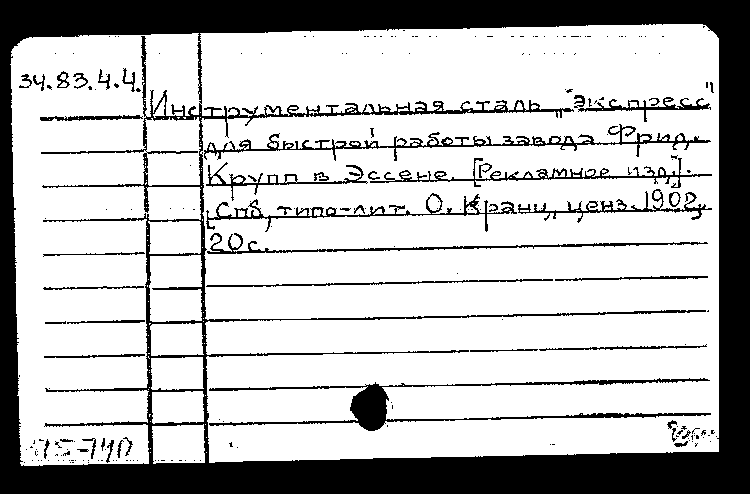 34.83.4.4.
Инструментальная сталь „Экспресс"
для быстрой работы завода Фрид.
Крупп в Эссене. [Рекламное изд.].
[Спб, типо-лит. О. Кранц, ценз. 1902,
20с.